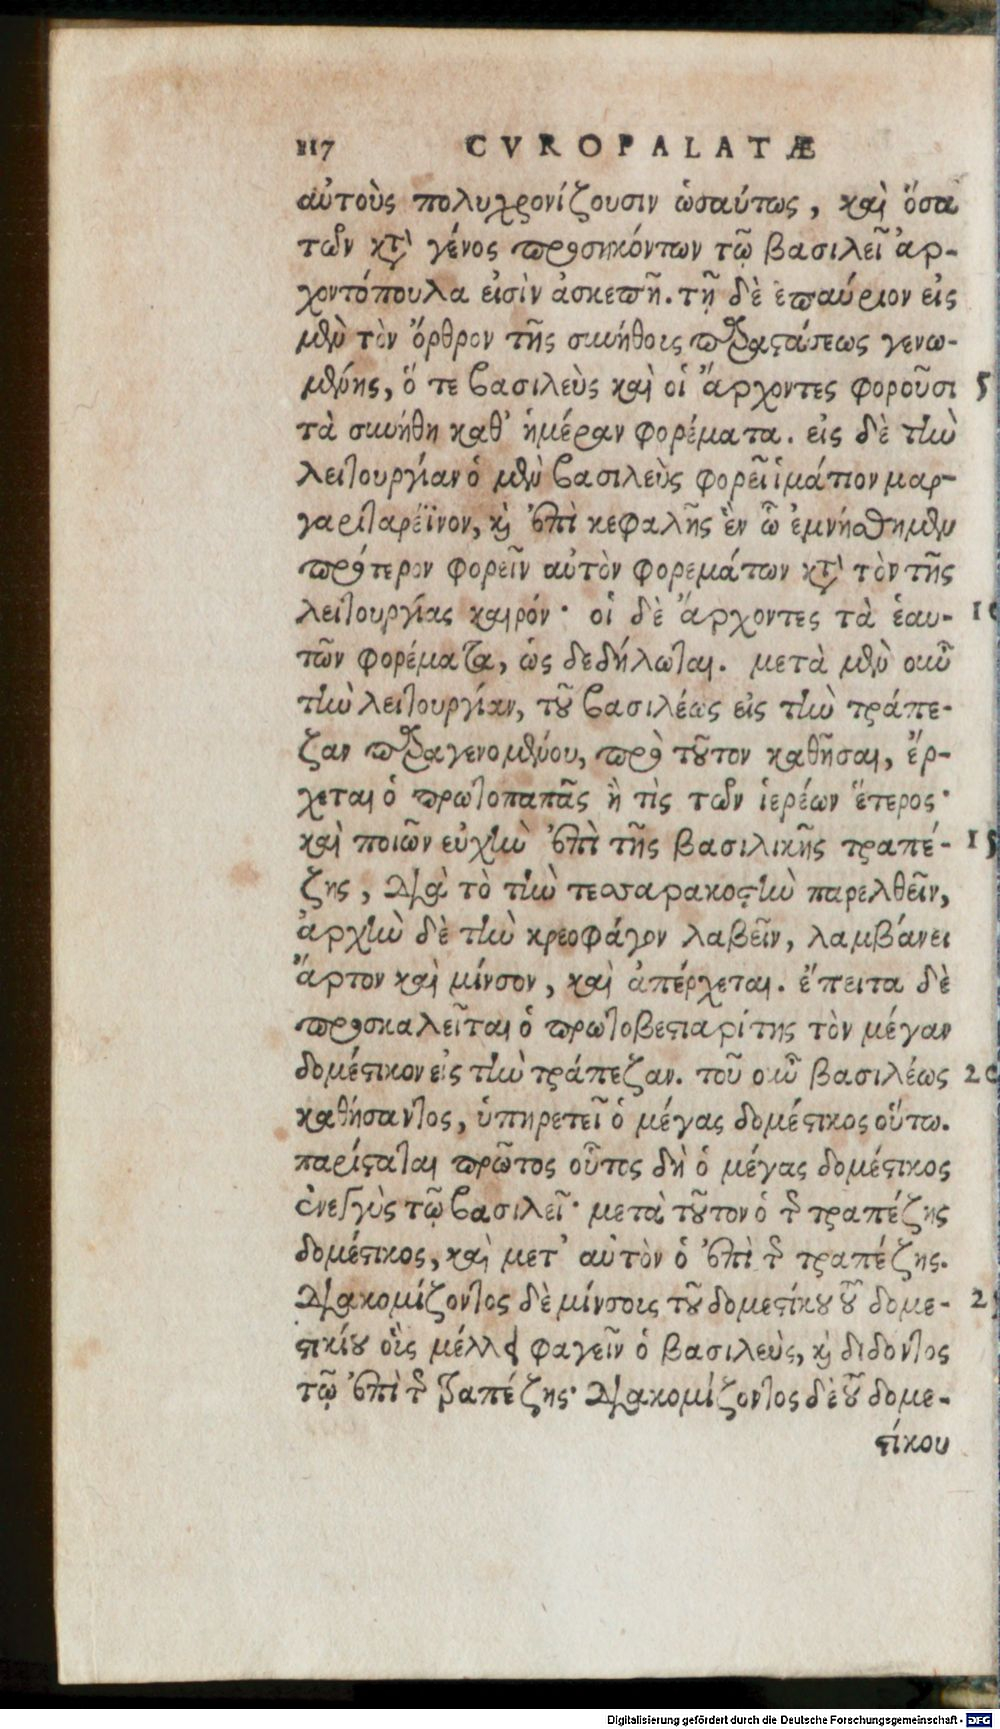 117 CVROPALATÆ
αὐτοὺς πολυχρονίζουσιν ὡσαύτως, καὶ ὅσα
τῶν κτ̀ γένος προσηκόντων τῷ βασιλεῖ ἀρ-
χοντόπουλα εἰσὶν ἀσκεπῆ. τῇ δὲ ἐπαύριον εἰς
μὲν τὸν ὄρθρον τῆς συνήθους παραστάσεως γενω-
μένης, ὅ τε βασιλεὺς καὶ οἱ ἄρχοντες φοροῦσι 5
τὰ συνήθη καθ' ἡμέραν φορέματα. εἰς δὲ τὴν
λειτουργίαν ὁ μὲν βασιλεὺς φορεῖ ἱμάτιον μαρ-
γαριταρέϊνον, κ̀ ἐπὶ κεφαλῆς ἓν ὧ ἐμνήσθημεν
πρότερον φορεῖν αὐτὸν φορεμάτων κτ̀ τὸν τῆς
λειτουργίας καιρόν· οἱ δὲ ἄρχοντες τὰ ἑαυ- 10
τῶν φορέματα, ὡς δεδήλωται. μετὰ μὲν οὖν
τὴν λειτουργίαν, τοῦ βασιλέως εἰς τὴν τράπε-
ζαν παραγενομένου, πρὸ τοῦτον καθῆσαι, ἔρ-
χεται ὁ πρωτοπαπᾶς ἢ τὶς τῶν ἱερέων ἕτερος·
καὶ ποιῶν εὐχὴν ἐπὶ τῆς βασιλικῆς τραπέ- 15
ζης, διὰ τὸ τὴν τεσσαρακοστὴν παρελθεῖν,
ἀρχὴν δὲ τὴν κρεοφάγον λαβεῖν, λαμβάνει
ἄρτον καὶ μίνσον, καὶ ἀπέρχεται. ἔπειτα δὲ
προσκαλεῖται ὁ πρωτοβεστιαρίτης τὸν μέγαν
δομέστικον εἰς τὴν τράπεζαν. τοῦ οὖν βασιλέως 20
καθήσαντος, ὑπηρετεῖ ὁ μέγας δομέστικος οὕτω.
παρίσταται πρῶτος οὗτος δὴ ὁ μέγας δομέστικος
ἐνεγγὺς τῷ βασιλεῖ· μετὰ τοῦτον ὁ τῆς τραπέζης
δομέστικος, καὶ μετ' αὐτὸν ὁ ἐπὶ τῆς τραπέζης.
διακομίζοντος δὲ μίνσους τοῦ δομεστίκου τοῦ δομε- 25
στικίου οἷς μέλλει φαγεῖν ὁ βασιλεὺς, κ̀ διδόντος
τῷ ἐπὶ τῆς τραπέζης· διακομίζοντος δὲ τοῦ δομε-
στίκου
Digitalisierung gefördert durch die Deutsche Forschungsgemeinschaft - DFG